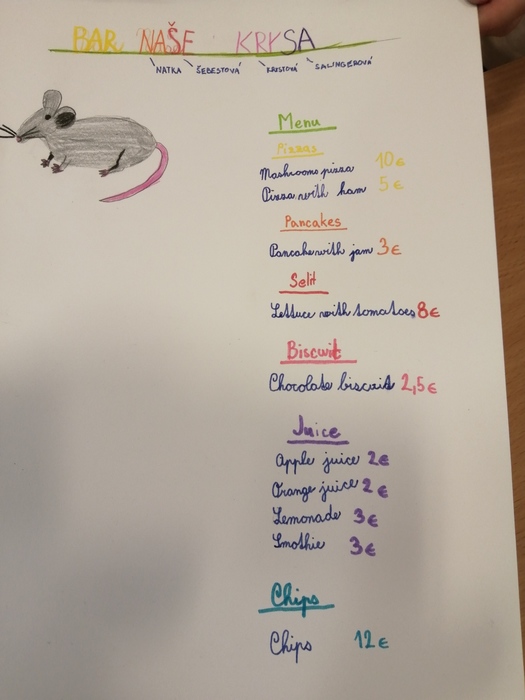 BAR NAŠE KRYSA
NATKA ŠEBESTOVÁ KRISTOVÁ SALINGEROVÁ
Menu
Pizzas
Mashrooms pizza 10€
Pizza with ham 5€
Pancakes
Pancake with jam 3€
Selit
Lettuce with tomatoes 8€
Biscuit
Chocolate biscuit 2,5€
Juice
Apple juice 2€
Orange juice 2€
Lemonade 3€
Smothie 3€
Chips
Chips 12€